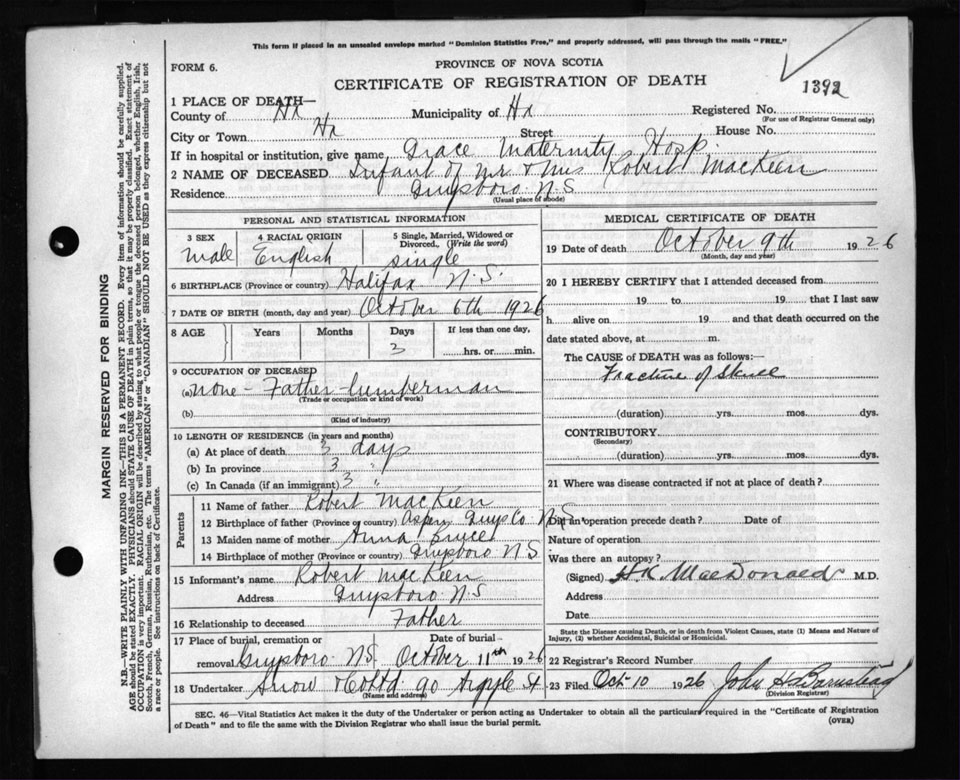 This form if placed in an unsealed envelope marked "Dominion Statistics Free," and properly addressed, will pass through the mails "FREE."
FORM 6.
PROVINCE OF NOVA SCOTIA
CERTIFICATE OF REGISTRATION OF DEATH
1392
1 PLACE OF DEATH—
County of Hx Municipality of Hx Registered No.
(For use of Registrar General only)
City or Town Hx Street House No.
If in hospital or institution, give name Grace Maternity Hosp.
2 NAME OF DECEASED Infant of Mr & Mrs Robert MacKeen
Residence Guysboro N.S
(Usual place of abode)
PERSONAL AND STATISTICAL INFORMATION
3 SEX
Male
4 RACIAL ORIGIN
English
5 Single, Married, Widowed or Divorced, (Write the word)
single
6 BIRTHPLACE (Province or country) Halifax N.S.
7 DATE OF BIRTH (month, day and year) October 6th 1926
8 AGE Years Months Days If less than one day,
3 hrs. or min.
9 OCCUPATION OF DECEASED
(a) none - Father - lumberman
(Trade or occupation or kind of work)
(b)
(Kind of industry)
10 LENGTH OF RESIDENCE (in years and months)
(a) At place of death 3 days
(b) In province 3 "
(c) In Canada (if an immigrant) 3 "
Parents
11 Name of father Robert MacKeen
12 Birthplace of father (Province or country) Aspen Guys Co N.S.
13 Maiden name of mother Anna Bruce
14 Birthplace of mother (Province or country) Guysboro N S
15 Informant's name Robert MacKeen
Address Guysboro N.S
16 Relationship to deceased Father
17 Place of burial, cremation or removal Guysboro N.S. Date of burial October 11th 1926
18 Undertaker Snow & Co Ltd. 90 Argyle St
(Name and address)
MEDICAL CERTIFICATE OF DEATH
19 Date of death October 9th 1926
(Month, day and year)
20 I HEREBY CERTIFY that I attended deceased from
19 to 19 that I last saw
h alive on 19 and that death occurred on the
date stated above, at m.
The CAUSE of DEATH was as follows:—
Fracture of Skull
(duration) yrs. mos. dys.
CONTRIBUTORY
(Secondary)
(duration) yrs. mos. dys.
21 Where was disease contracted if not at place of death?
Did an operation precede death? Date of
Nature of operation
Was there an autopsy?
(Signed) H.K. MacDonald M.D.
Address
Date
State the Disease causing Death, or in death from Violent Causes, state (1) Means and Nature of Injury, (2) whether Accidental, Suicidal or Homicidal.
22 Registrar's Record Number
23 Filed Oct-10 1926 John H Barnstead
(Division Registrar)
SEC. 46—Vital Statistics Act makes it the duty of the Undertaker or person acting as Undertaker to obtain all the particulars required in the "Certificate of Registration of Death" and to file the same with the Division Registrar who shall issue the burial permit.
(OVER)
MARGIN RESERVED FOR BINDING
N.B.—WRITE PLAINLY WITH UNFADING INK—THIS IS A PERMANENT RECORD. Every item of information should be carefully supplied.
AGE should be stated EXACTLY. PHYSICIANS should STATE CAUSE OF DEATH in plain terms, so that it may be properly classified. Exact statement of
OCCUPATION is very important. RACIAL ORIGIN will be described by stating to what people or tongue the deceased person belonged, whether English, Irish,
Scotch, French, German, Russian, Ruthenian, etc. The terms "AMERICAN" or "CANADIAN" SHOULD NOT BE USED as they express citizenship but not
a race or people. See instructions on back of Certificate.